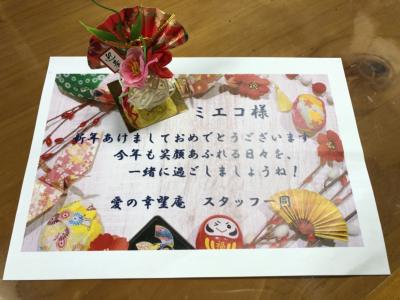 ミエコ様
新年あけましておめでとうございます
今年も笑顔あふれる日々を、
一緒に過ごしましょうね！
愛の幸望庵　スタッフ一同